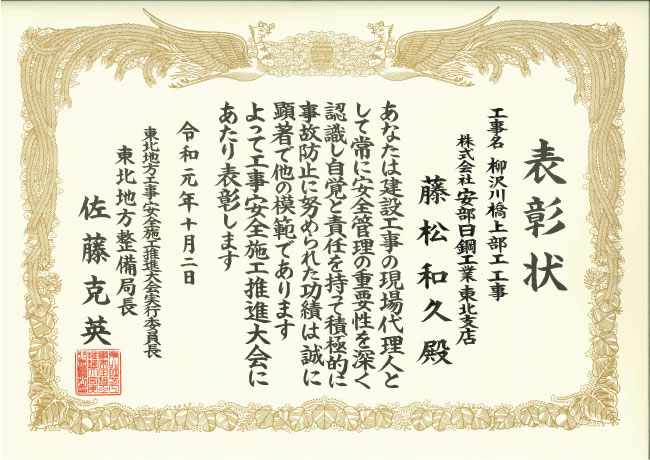 表彰状
工事名 柳沢川橋上部工工事
株式会社 安部日鋼工業 東北支店
藤松和久殿
あなたは建設工事の現場代理人と
して常に安全管理の重要性を深く
認識し自覚と責任を持って積極的に
事故防止に努められた功績は誠に
顕著で他の模範であります
よって工事安全施工推進大会に
あたり表彰します
令和元年十月二日
東北地方工事安全施工推進大会実行委員長
東北地方整備局長
佐藤克英